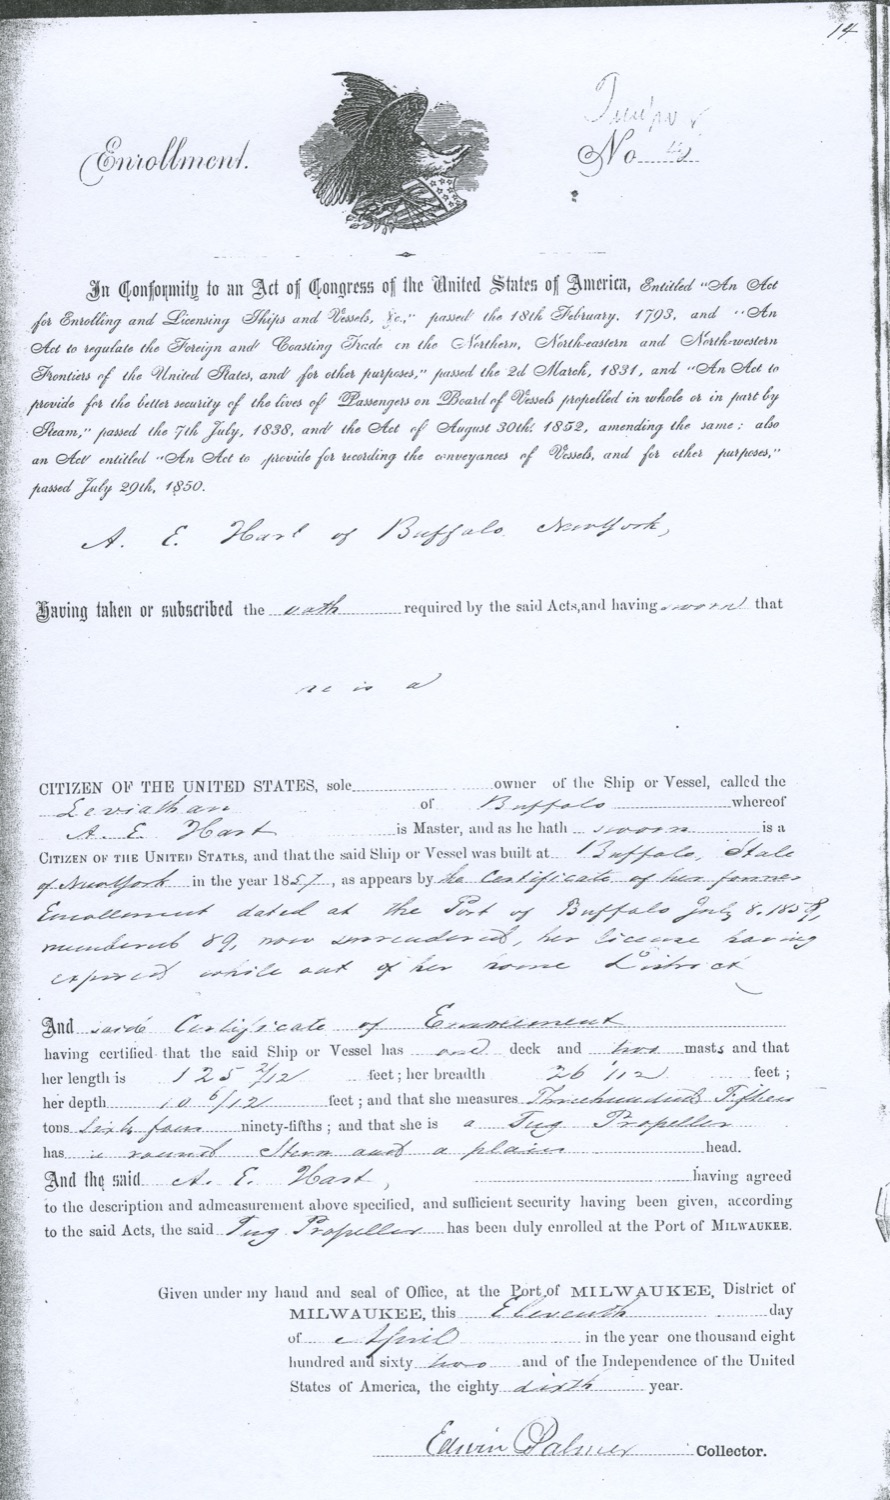 14
Enrollment.
No 42
In Conformity to an Act of Congress of the United States of America, Entitled "An Act
for Enrolling and Licensing Ships and Vessels, &c.," passed the 18th February, 1793, and "An
Act to regulate the Foreign and Coasting Trade on the Northern, North-eastern and North-western
Frontiers of the United States, and for other purposes," passed the 2d March, 1831, and "An Act to
provide for the better security of the lives of Passengers on Board of Vessels propelled in whole or in part by
Steam," passed the 7th July, 1838, and the Act of August 30th 1852, amending the same; also
an Act entitled "An Act to provide for recording the conveyances of Vessels, and for other purposes,"
passed July 29th, 1850.
A. E. Hart of Buffalo New York,
Having taken or subscribed the oath required by the said Acts, and having sworn that
he is a
CITIZEN OF THE UNITED STATES, sole owner of the Ship or Vessel, called the
Leviathan of Buffalo whereof
A. E. Hart is Master, and as he hath sworn is a
CITIZEN OF THE UNITED STATES, and that the said Ship or Vessel was built at Buffalo, State
of New York in the year 1857, as appears by the Certificate of her former
Enrollment dated at the Port of Buffalo July 8, 1859,
numbered 89, now surrendered, her license having
expired while out of her home District
And said Certificate of Enrollment
having certified that the said Ship or Vessel has one deck and two masts and that
her length is 125 2/12 feet; her breadth 26 1/12 feet;
her depth 10 6/12 feet; and that she measures Three hundred Fifteen
tons Sixty four ninety-fifths; and that she is a Tug Propeller
has a round Stern and a plain head.
And the said A. E. Hart, having agreed
to the description and admeasurement above specified, and sufficient security having been given, according
to the said Acts, the said Tug Propeller has been duly enrolled at the Port of MILWAUKEE.
Given under my hand and seal of Office, at the Port of MILWAUKEE, District of
MILWAUKEE, this Eleventh day
of April in the year one thousand eight
hundred and sixty two and of the Independence of the United
States of America, the eighty sixth year.
Edwin Palmer Collector.